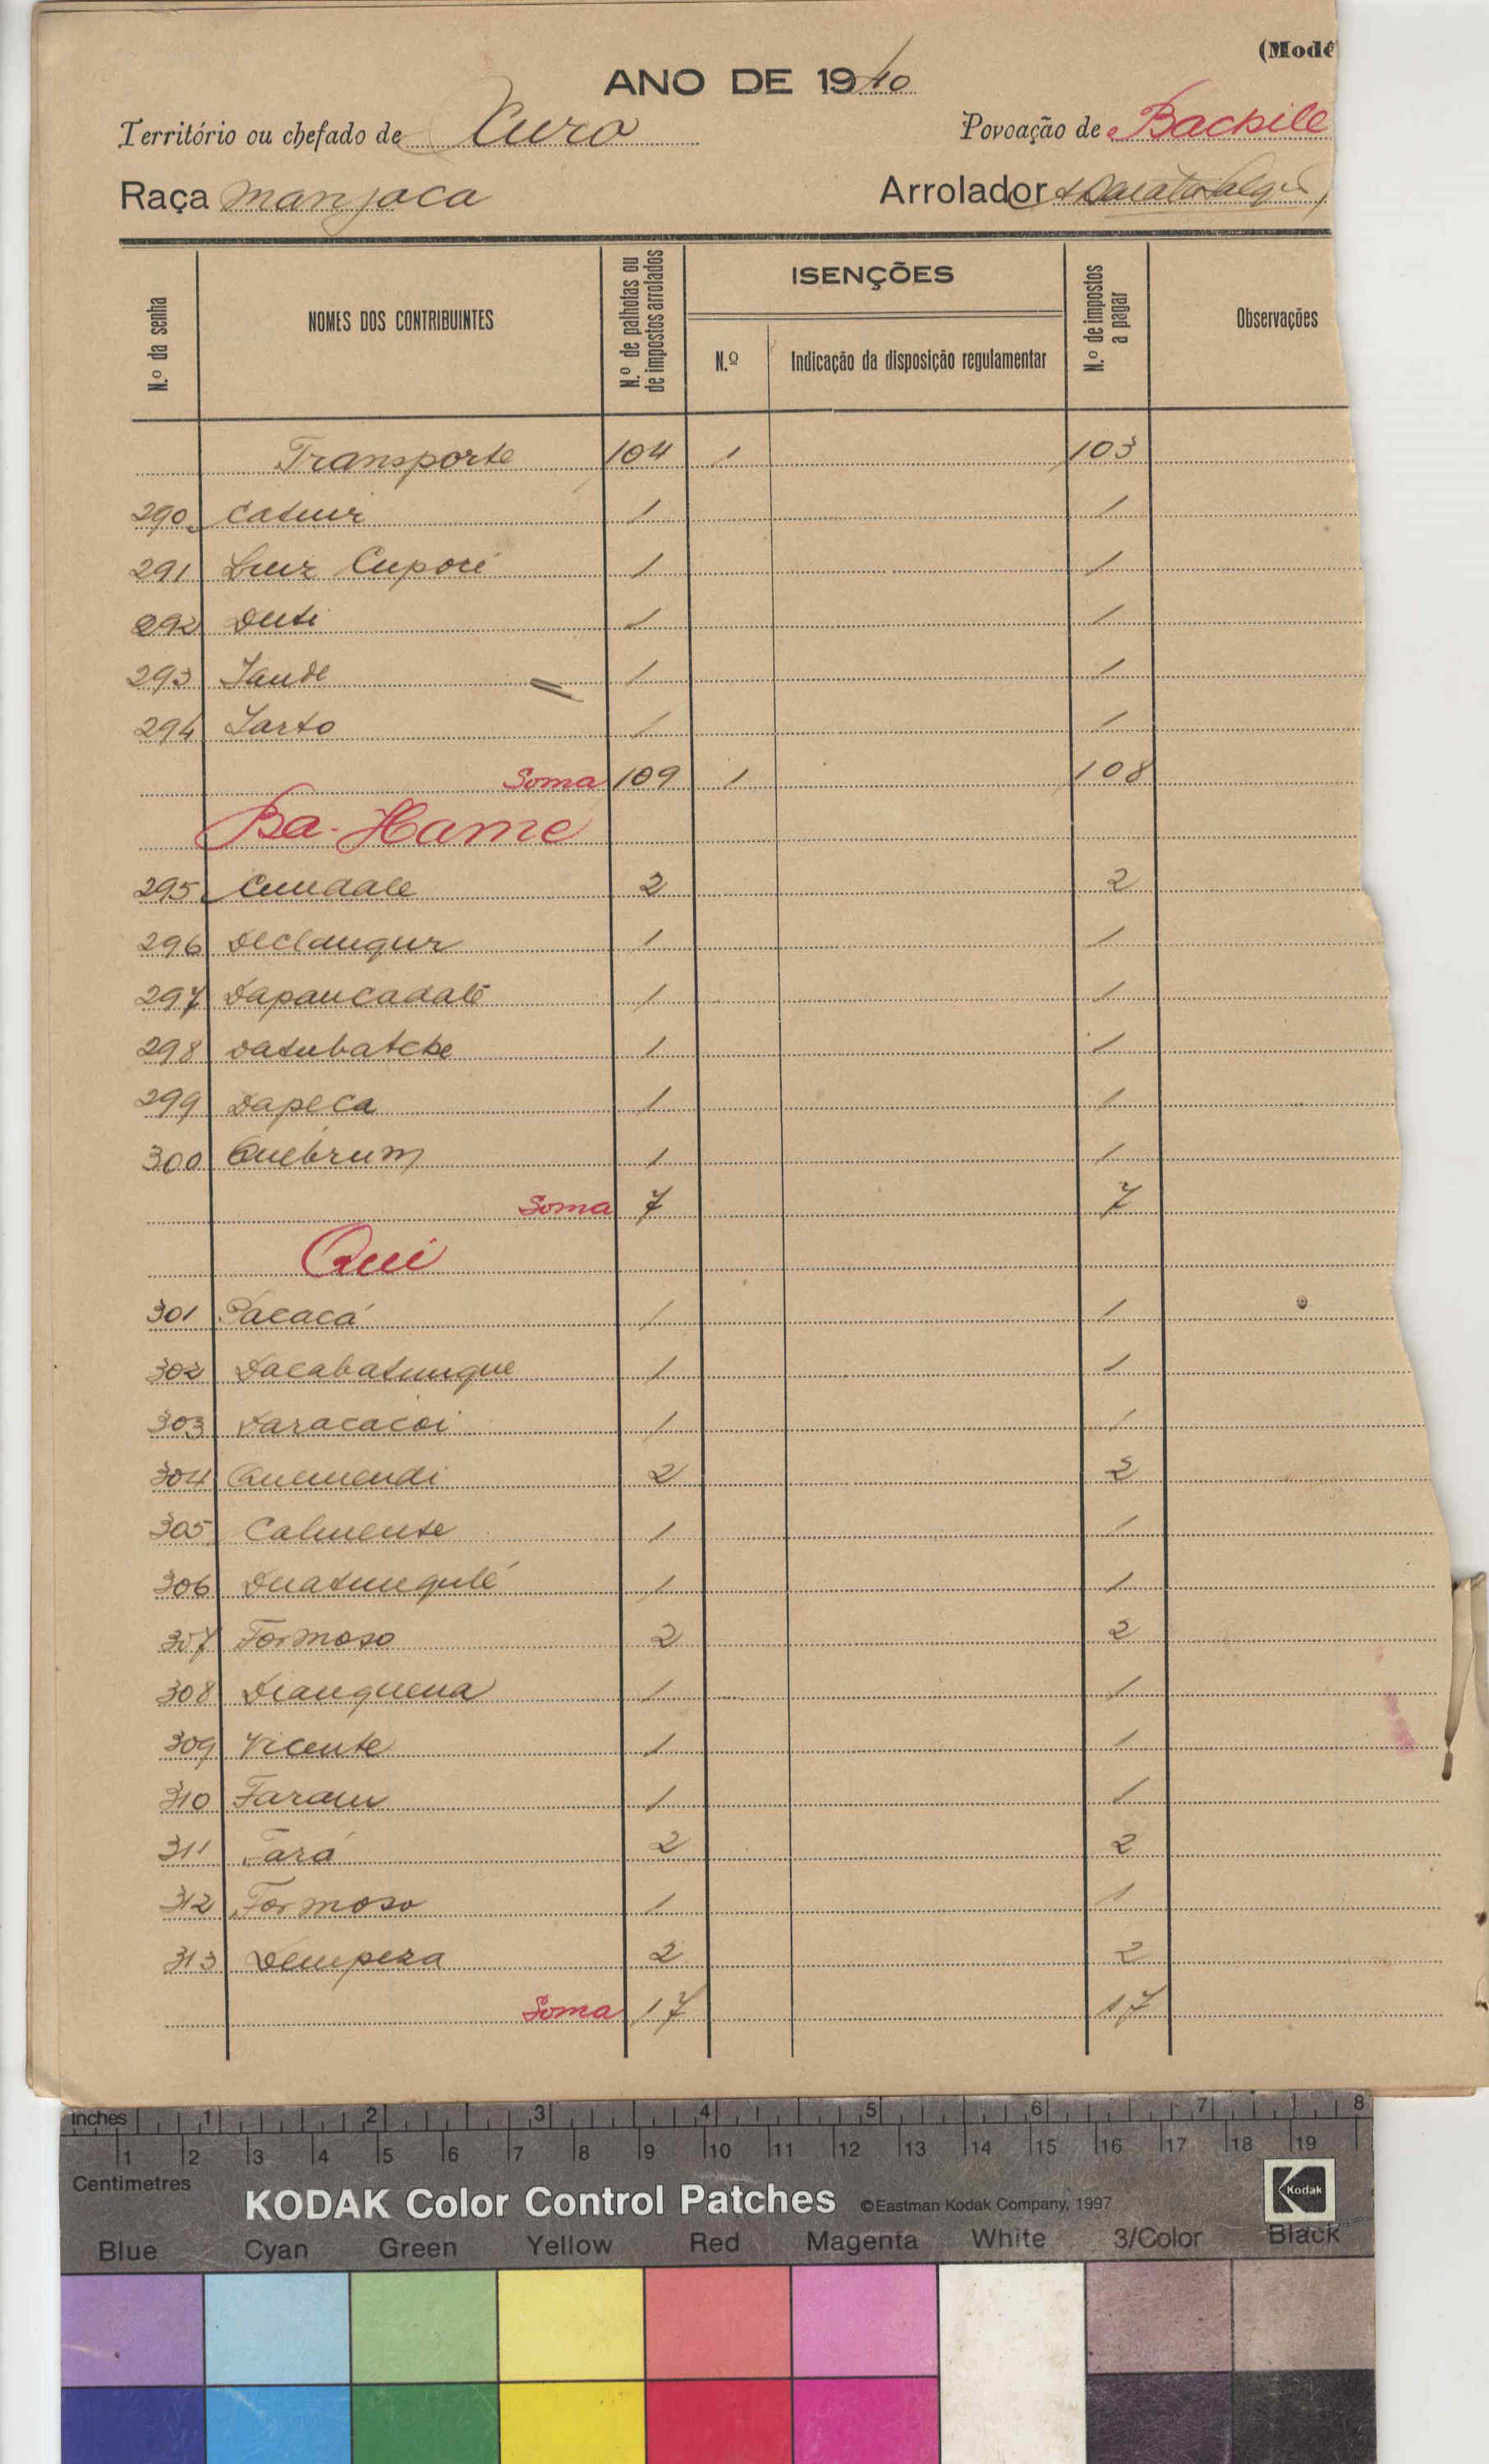 (Mode
ANO DE 1940
Território ou chefado de Churo Povoação de Bachile
Raça manjaca Arrolador
N.º da senha NOMES DOS CONTRIBUINTES N.º de palhotas ou de impostos arrolados ISENÇÕES N.º de impostos a pagar Observações
N.º Indicação da disposição regulamentar
Transporte 104 1 103
290 Catuir 1 1
291 Luiz Cuporé 1 1
292 Duti 1 1
293 Jaude 1 1
294 Jarto 1 1
Soma 109 1 108
Ba-Hame
295 Cundale 2 2
296 Declangur 1 1
297 Dapancadalé 1 1
298 Datubatche 1 1
299 Dapeca 1 1
300 Quebrum 1 1
Soma 7 7
Qui
301 Pacacá 1 1
302 Dacabatunque 1 1
303 Daracacoi 1 1
304 Quemendi 2 2
305 Calmente 1 1
306 1 1
307 Formoso 2 2
308 Dianquena 1 1
309 Vicente 1 1
310 Faram 1 1
311 Fará 2 2
312 Formoso 1 1
313 Dempexa 2 2
Soma 17 17
inches 1 2 3 4 5 6 7 8
1 2 3 4 5 6 7 8 9 10 11 12 13 14 15 16 17 18 19
Centimetres
KODAK Color Control Patches ©Eastman Kodak Company, 1997 Kodak
Blue Cyan Green Yellow Red Magenta White 3/Color Black